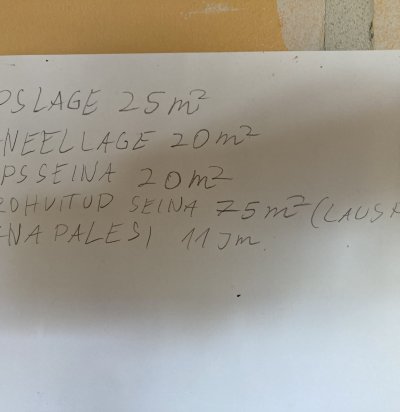 OSLAGE 25m²
NEELLAGE 20m²
PSSEINA 20m²
ROHVITUD SEINA 75m² (LAUS
NAPALESI 11 Jm